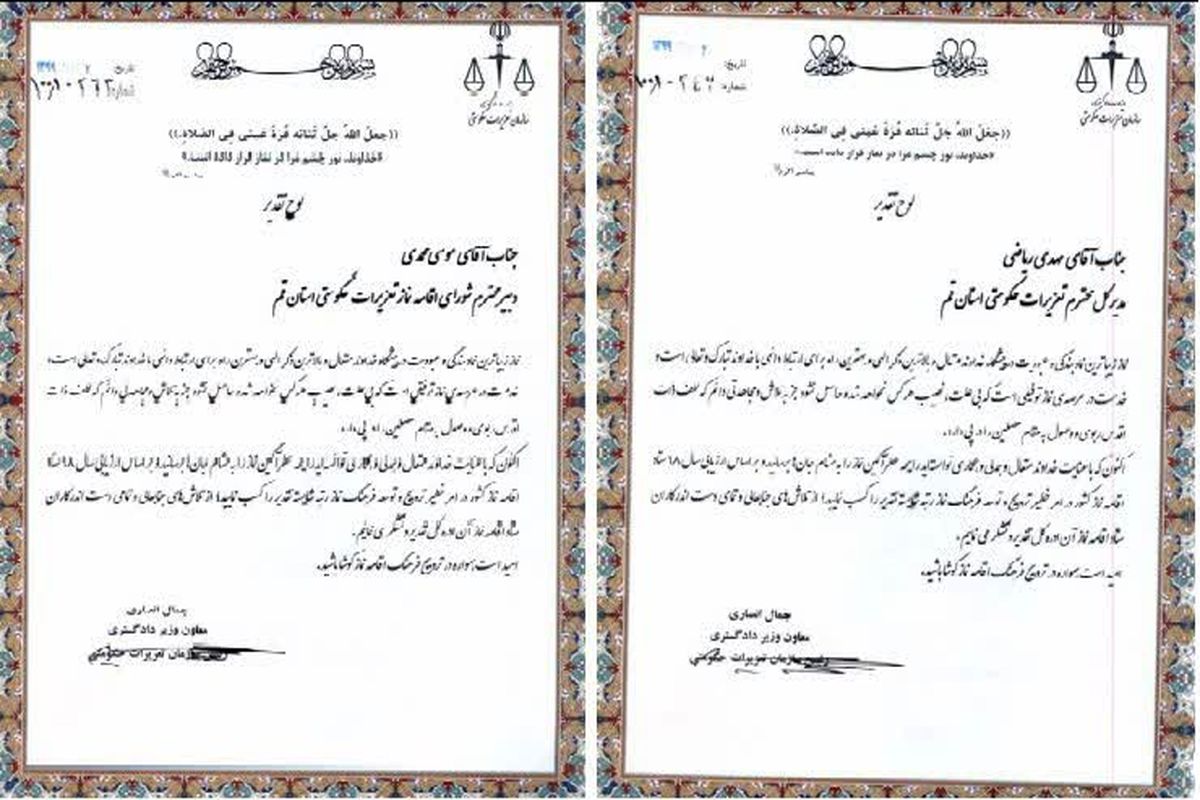 بسم الله الرحمن الرحیم
تاریخ:
شماره:
سازمان تعزیرات حکومتی
((جَعلَ اللهُ جَلّ ثَنائه قُرّةَ عَینی فِی الصَّلاةِ.))
«خداوند، نور چشم مرا در نماز قرار داده است.»
لوح تقدیر
جناب آقای موسی محمدی
دبیر محترم شورای اقامه نماز تعزیرات حکومتی استان قم
نماز زیباترین نماد بندگی و عبودیت در پیشگاه خداوند متعال و بالاترین ذکر الهی و بهترین راه برای ارتباط دائمی با خداوند تبارک و تعالی است و
خدمت در عرصه‌ی نماز توفیقی است که بی علت، نصیب هر کس نخواهد شد و حاصل نشود جز به تلاش و مجاهدتی دائم که لطف ذات
اقدس ربوبی و وصول به مقام مصلین را در پی دارد.
اکنون که با عنایت خداوند متعال و همدلی و همکاری توانسته‌اید رایحه عطرآگین نماز را به مشام جان‌ها برسانید و بر اساس ارزیابی سال ۹۸ ستاد
اقامه نماز کشور در امر خطیر ترویج و توسعه فرهنگ نماز رتبه شایسته تقدیر را کسب نمایید؛ از تلاش‌های جنابعالی و تمامی دست اندرکاران
ستاد اقامه نماز آن اداره کل تقدیر و تشکر می نمایم.
امید است همواره در ترویج فرهنگ اقامه نماز کوشا باشید.
جمال انصاری
معاون وزیر دادگستری
رئیس سازمان تعزیرات حکومتی
بسم الله الرحمن الرحیم
تاریخ:
شماره:
سازمان تعزیرات حکومتی
((جَعلَ اللهُ جَلّ ثَنائه قُرّةَ عَینی فِی الصَّلاةِ.))
«خداوند، نور چشم مرا در نماز قرار داده است.»
لوح تقدیر
جناب آقای مهدی ریاضی
مدیر کل محترم تعزیرات حکومتی استان قم
نماز زیباترین نماد بندگی و عبودیت در پیشگاه خداوند متعال و بالاترین ذکر الهی و بهترین راه برای ارتباط دائمی با خداوند تبارک و تعالی است و
خدمت در عرصه‌ی نماز توفیقی است که بی علت، نصیب هر کس نخواهد شد و حاصل نشود جز به تلاش و مجاهدتی دائم که لطف ذات
اقدس ربوبی و وصول به مقام مصلین را در پی دارد.
اکنون که با عنایت خداوند متعال و همدلی و همکاری توانسته‌اید رایحه عطرآگین نماز را به مشام جان‌ها برسانید و بر اساس ارزیابی سال ۹۸ ستاد
اقامه نماز کشور در امر خطیر ترویج و توسعه فرهنگ نماز رتبه شایسته تقدیر را کسب نمایید؛ از تلاش‌های جنابعالی و تمامی دست اندرکاران
ستاد اقامه نماز آن اداره کل تقدیر و تشکر می نمایم.
امید است همواره در ترویج فرهنگ اقامه نماز کوشا باشید.
جمال انصاری
معاون وزیر دادگستری
رئیس سازمان تعزیرات حکومتی